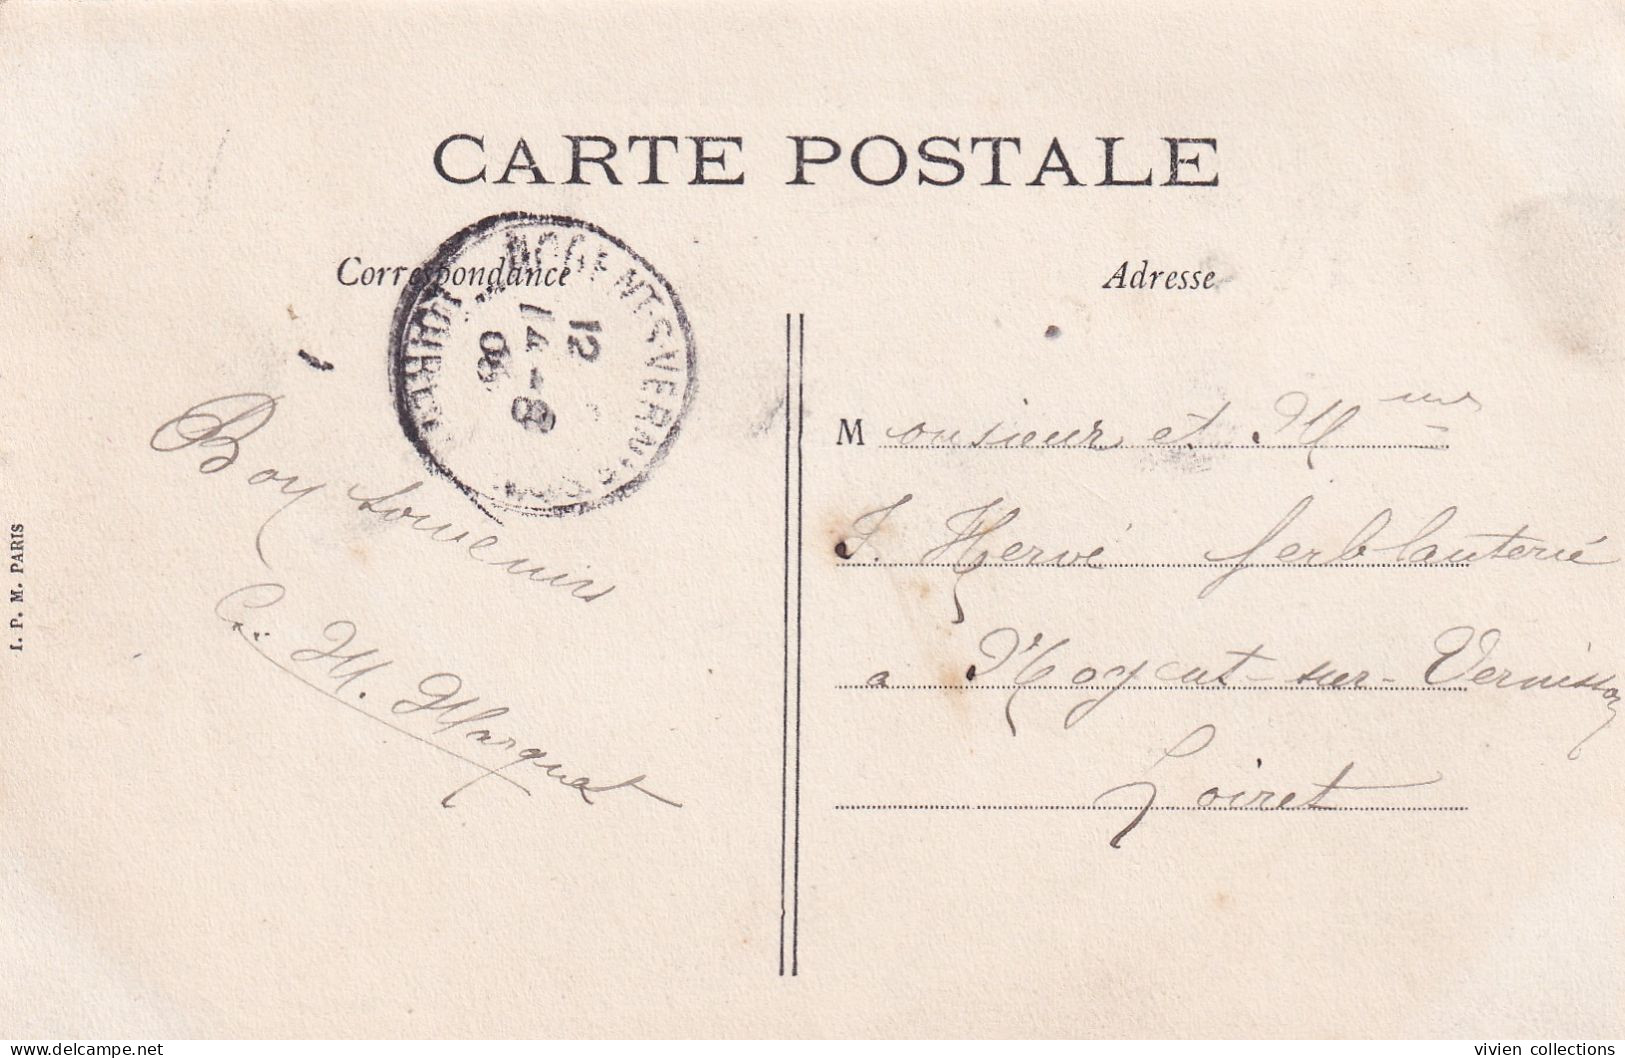 CARTE POSTALE
Correspondance
Adresse
NOGENT-S-VERNISSON
LOIRET
12
14-8
08
Bon souvenir
C. M. Marquat
Monsieur et Mme
J. Hervé ferblanterie
a Nogent-sur-Vernisson
Loiret
I. P. M. PARIS
vivien collections